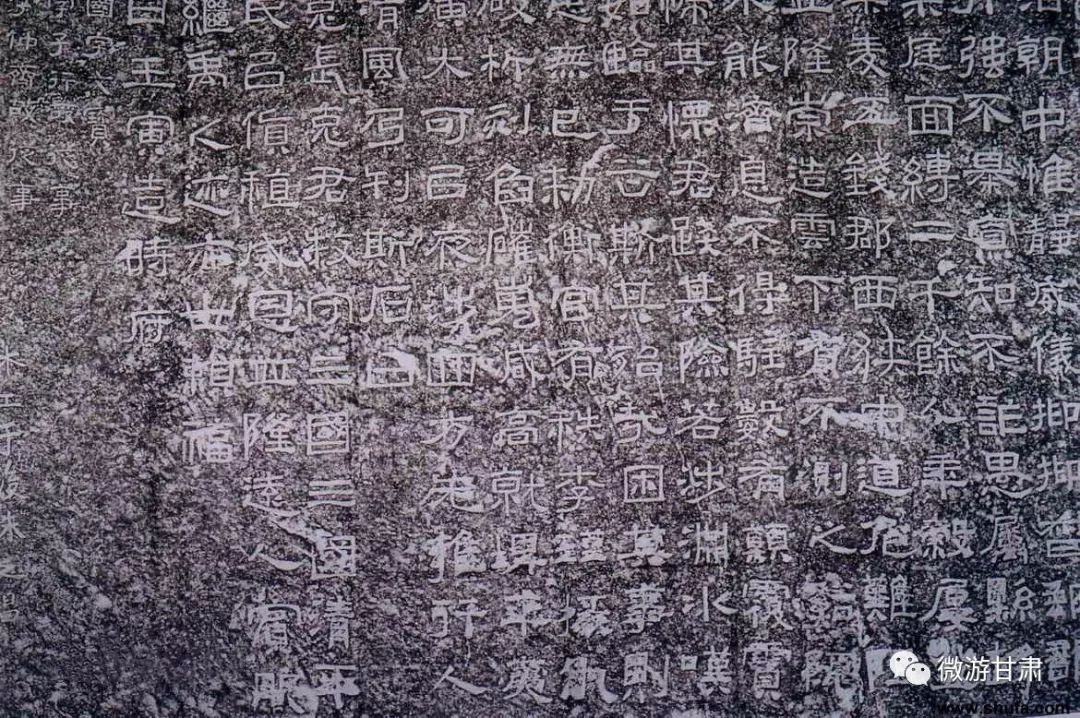 治朝中惟靜威儀抑抑督郵部
強不暴寡知不詐愚屬縣
來庭面縛二千餘人年穀屢登
粟麥五錢郡西狹中道危難阻
立隆崇造雲下有不測之谿阨
不能濟息不得駐數有顛覆霣
惴其慄君踐其險若涉淵冰嘆
如臨于谷斯其殆哉困其事則
患無已敕衡官有秩李瑾掾仇
破析刻臽磪嵬減高就埤平夷
廣大可以夜涉四方无雍行人
清風乃刊斯石曰
克長克君牧守三國三國清平
民以貨稙威恩並隆遠人賓服
繼禹之迹亦世賴福
日壬寅造時府
微游甘肃
www.shufa.com